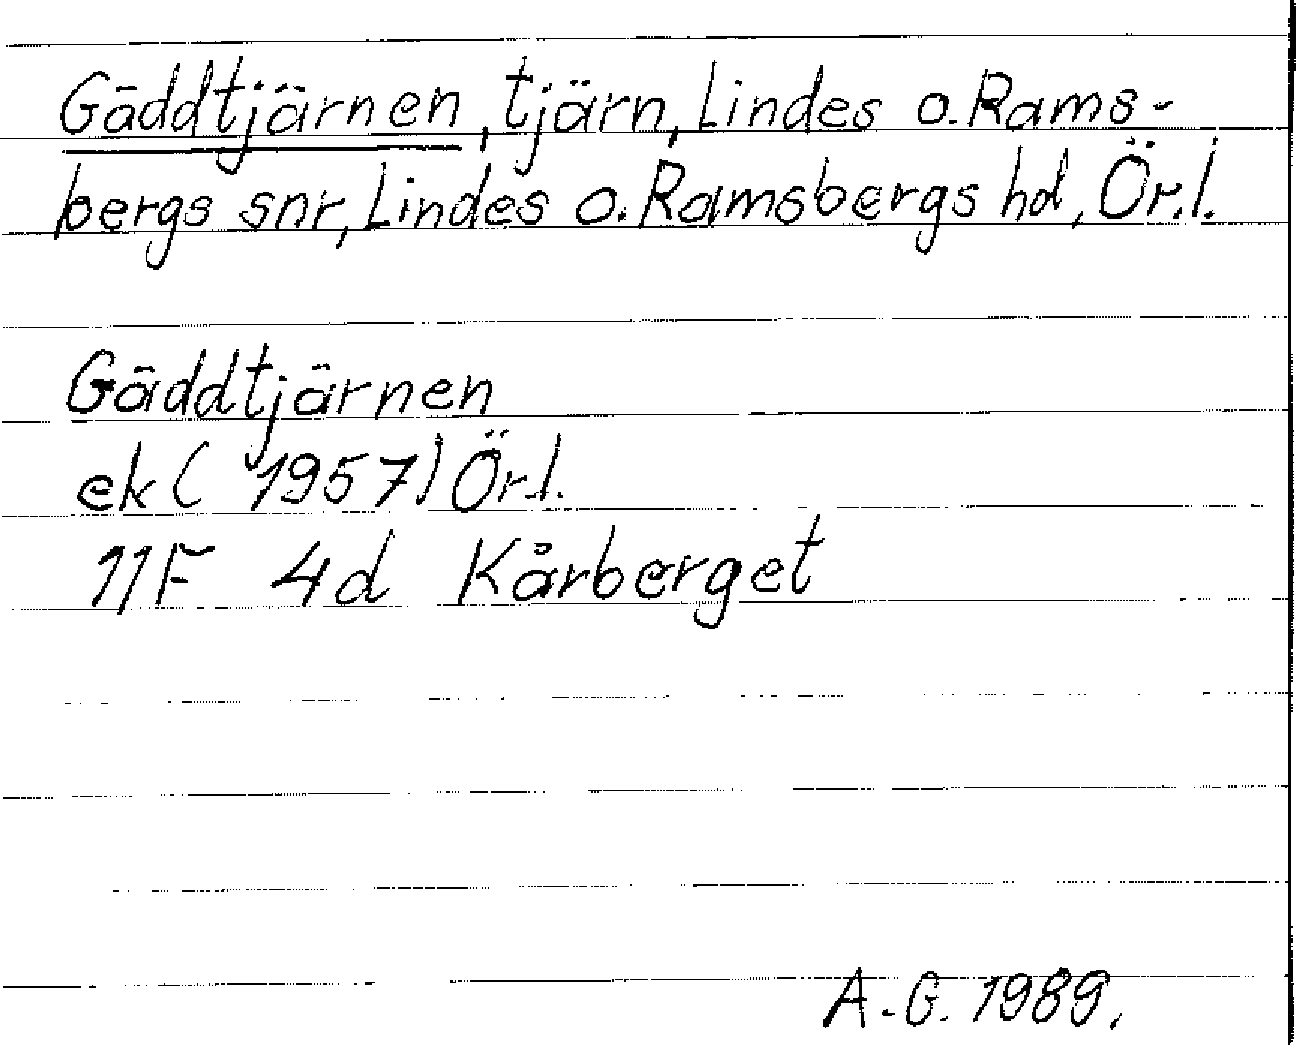 Gäddtjärnen, tjärn, Lindes o. Rams-
bergs snr, Lindes o. Ramsbergs hd, Ör.l.
Gäddtjärnen
ek ( 1957) Ör.l.
11F 4d Kårberget
A.G. 1989.